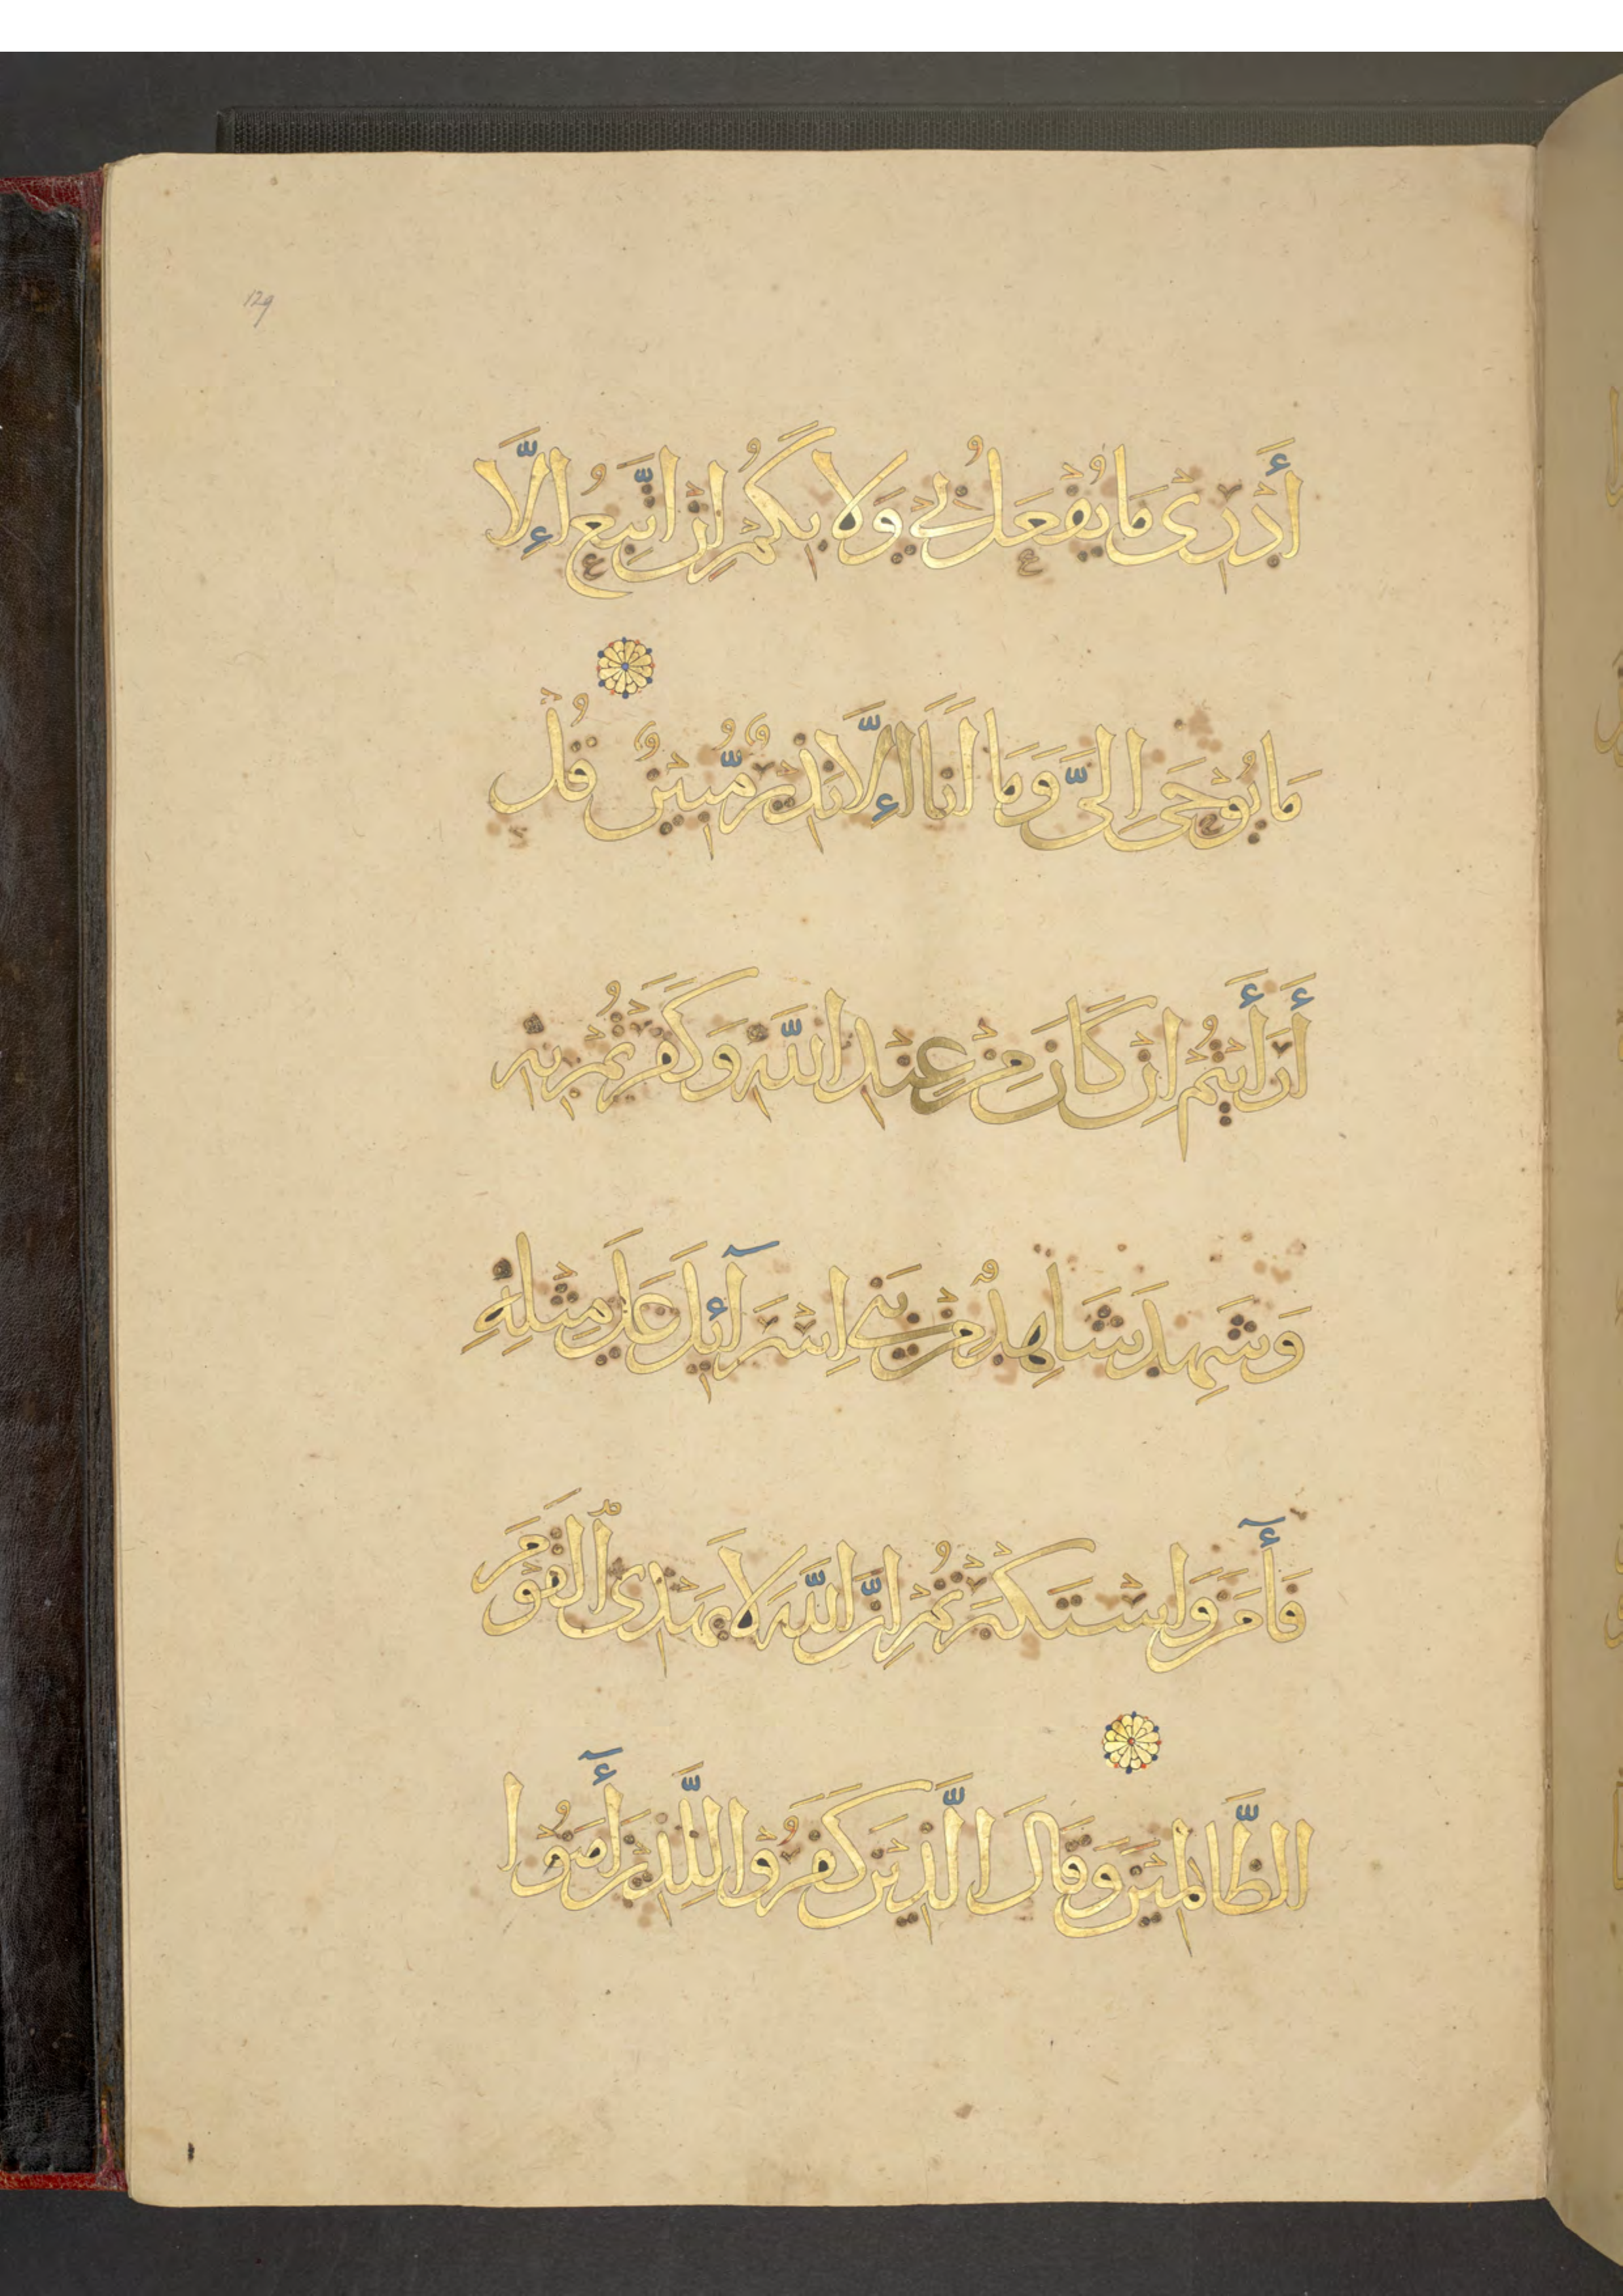 129
أَدْرِىْ مَا يُفْعَلُ بِيْ وَلَا بِكُمْ اِنْ اَتَّبِعُ اِلَّا
مَا يُوْحَىٰ اِلَىَّ وَمَا اَنَا اِلَّا نَذِيْرٌ مُّبِيْنٌ قُلْ
أَرَأَيْتُمْ اِنْ كَانَ مِنْ عِنْدِ اللَّهِ وَكَفَرْتُمْ بِهِ
وَشَهِدَ شَاهِدٌ مِنْ بَنِي اِسْرَآئِلَ عَلَى مِثْلِهِ
فَأٓمَنَ وَاسْتَكْبَرْتُمْ اِنَّ اللَّهَ لَا يَهْدِى ٱلْقَوْمَ
الظَّالِمِيْنَ وَقَالَ الَّذِيْنَ كَفَرُوْا لِلَّذِيْنَ أٓمَنُوْا